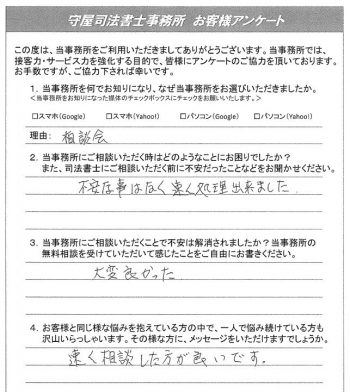 守屋司法書士事務所 お客様アンケート
この度は、当事務所をご利用いただきましてありがとうございます。当事務所では、
接客力・サービス力を強化する目的で、皆様にアンケートのご協力を頂いております。
お手数ですが、ご協力下されば幸いです。
1. 当事務所を何でお知りになり、なぜ当事務所をお選びいただきましたか。
＜当事務所をお知りになった媒体のチェックボックスにチェックをお願いいたします。＞
□スマホ(Google) □スマホ(Yahoo!) □パソコン(Google) □パソコン(Yahoo!)
理由: 相談会
2. 当事務所にご相談いただく時はどのようなことにお困りでしたか？
また、司法書士にご相談いただく前に不安だったことなどをお聞かせください。
不安な事はなく速く処理出来ました.
3. 当事務所にご相談いただくことで不安は解消されましたか？当事務所の
無料相談を受けていただいて感じたことをご自由にお書きください。
大変良かった
4. お客様と同じ様な悩みを抱えている方の中で、一人で悩み続けている方も
沢山いらっしゃいます。その様な方に、メッセージをいただけますでしょうか。
速く相談した方が良いです.